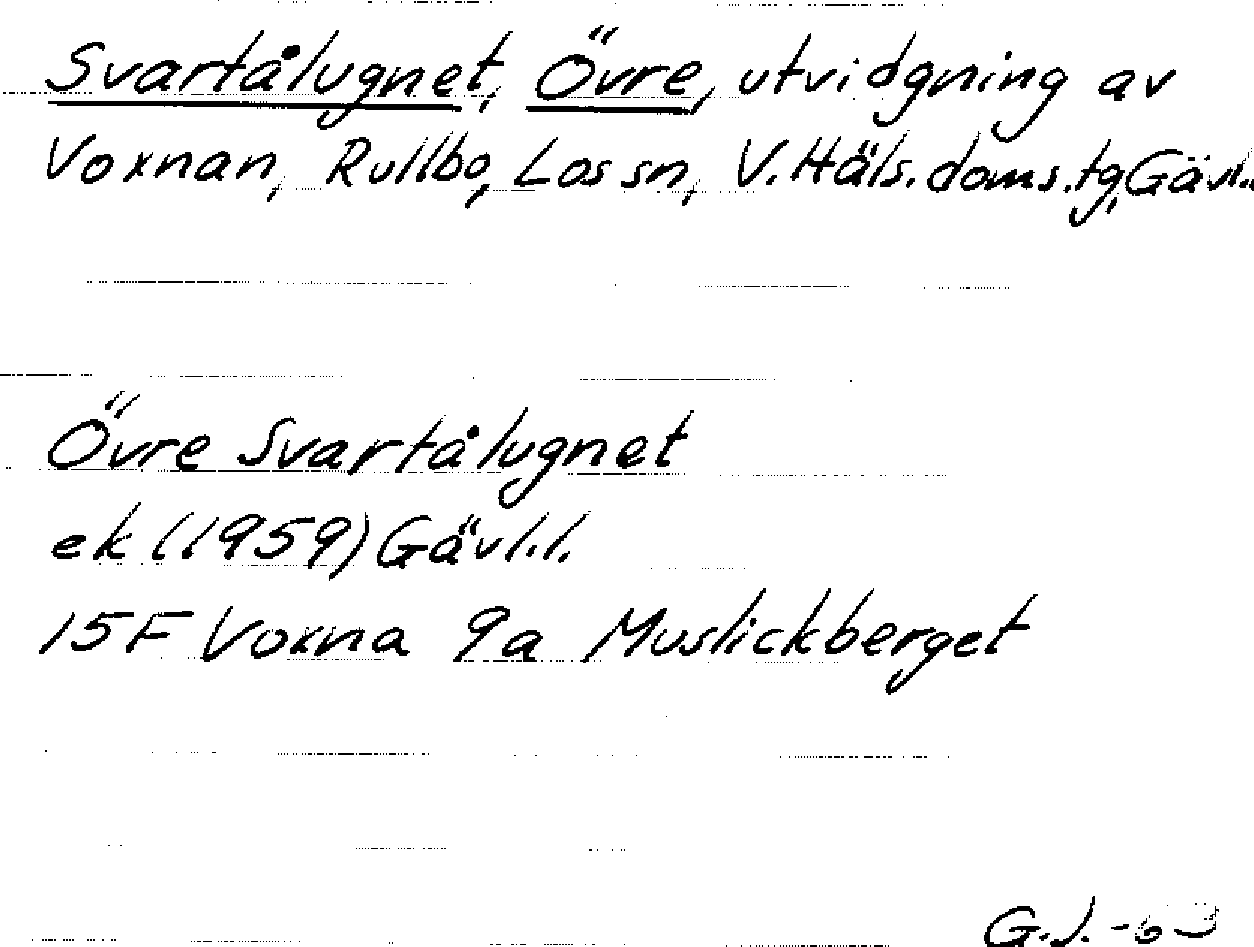 Svartålugnet, Övre, utvidgning av
Voxnan, Rullbo, Los sn, V. Häls. doms. tg, Gävl.
Övre Svartålugnet
ek (1959) Gävl.l.
15F Voxna 9a Muslickberget
G.J. -63